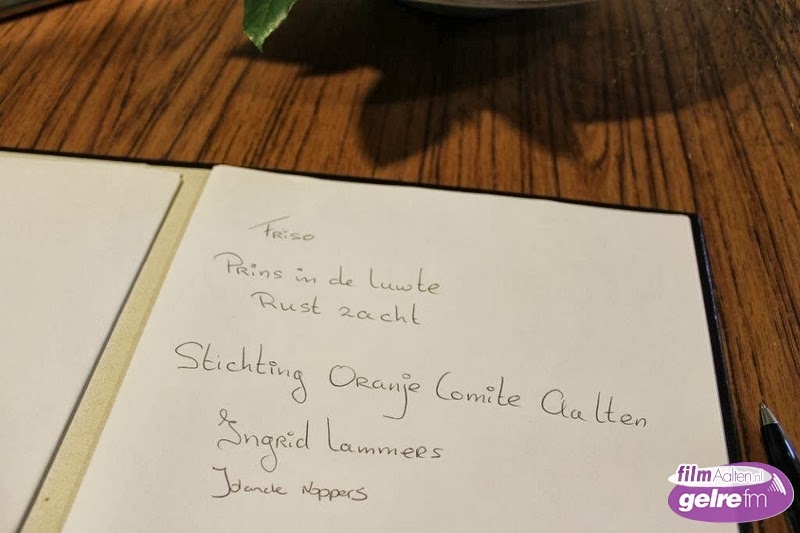 Friso
Prins in de luwte
Rust zacht
Stichting Oranje Comite Aalten
Ingrid Lammers
Noppers
film Aalten.nl
gelre fm